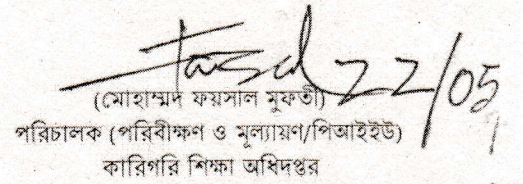 Faisal 22/05
(মোহাম্মদ ফয়সাল মুফতী)
পরিচালক (পরিবীক্ষণ ও মূল্যায়ণ/পিআইইউ)
কারিগরি শিক্ষা অধিদপ্তর